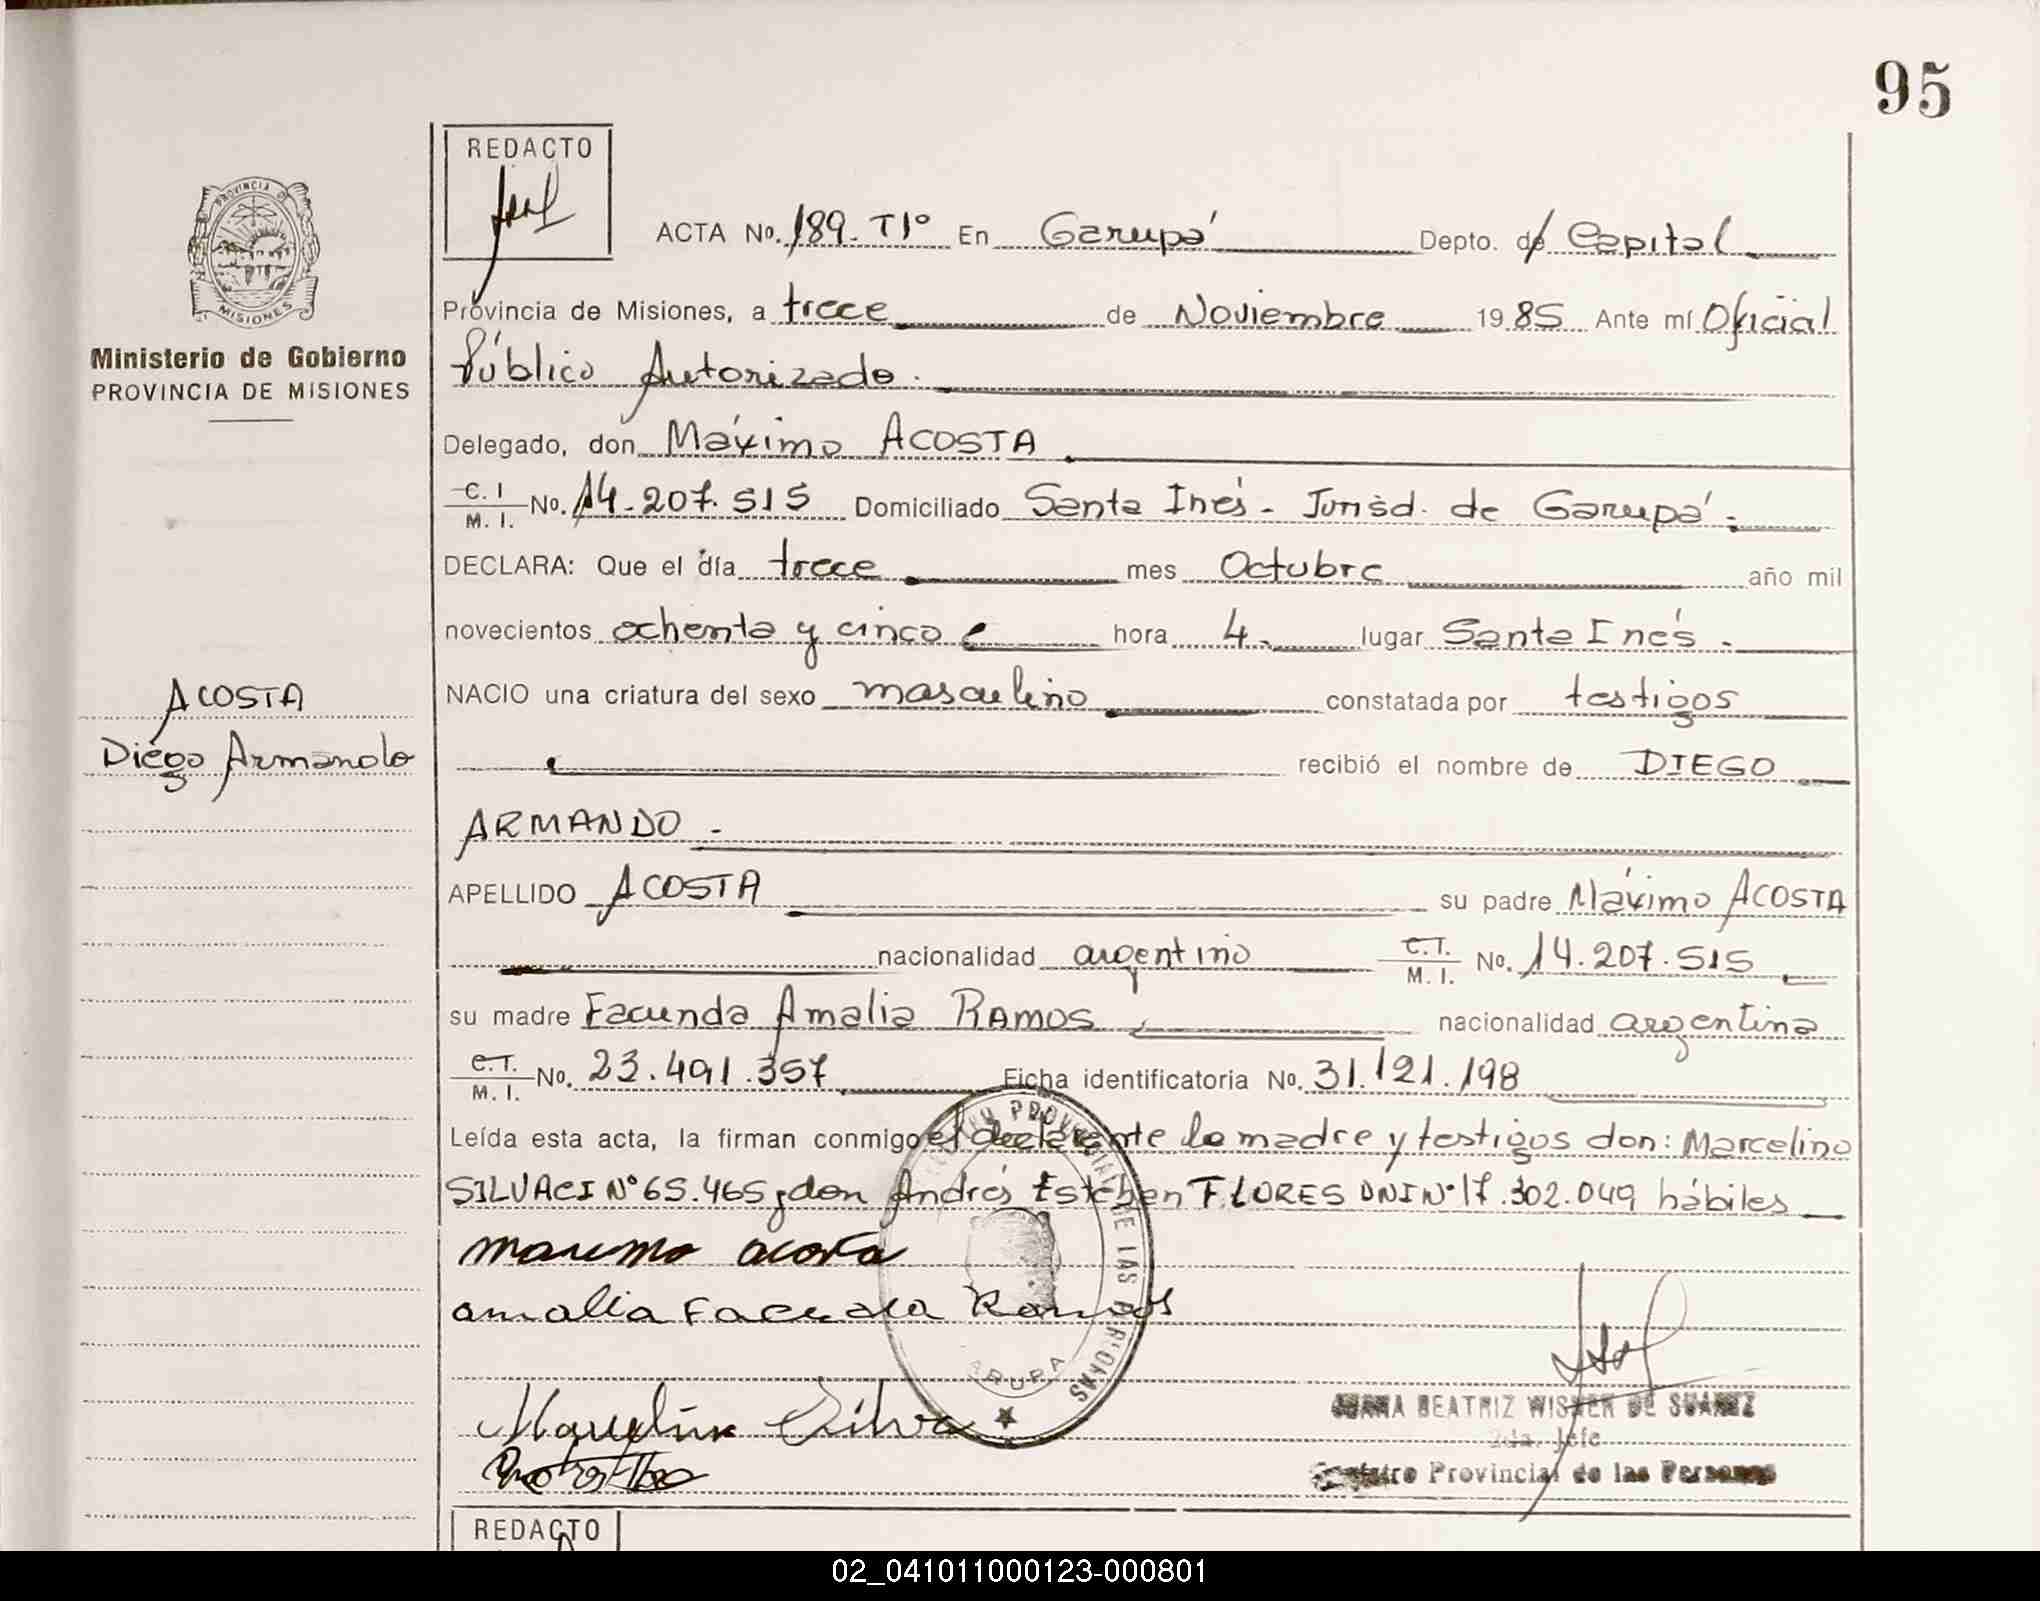 95
REDACTO
ACTA No. 189. TIº En Garupá Depto. de Capital
PROVINCIA DE MISIONES
Provincia de Misiones, a trece de Noviembre 1985 Ante mí Oficial
Ministerio de Gobierno
PROVINCIA DE MISIONES
Público Autorizado.
Delegado, don Máximo ACOSTA
C. I / M. I. No. 14.207.515 Domiciliado Santa Inés - Jurisd. de Garupá.
DECLARA: Que el día trece mes Octubre año mil
novecientos ochenta y cinco hora 4. lugar Santa Inés.
ACOSTA
Diego Armando
NACIO una criatura del sexo masculino constatada por testigos
recibió el nombre de DIEGO
ARMANDO.
APELLIDO ACOSTA su padre Máximo ACOSTA
nacionalidad argentino C.I. / M. I. No. 14.207.515
su madre Facunda Amalia RAMOS nacionalidad argentina
C.I. / M. I. No. 23.491.357 Ficha identificatoria No. 31.121.198
Leída esta acta, la firman conmigo el declarante la madre y testigos don: Marcelino
SILVA CI Nº 65.465 y don Andrés Esteban FLORES DNI Nº 17.302.049 hábiles
maximo acosta
amalia Facunda Ramos
PROVINCIAL DE LAS PERSONAS
GARUPA
Marcelino Silva
JUANA BEATRIZ WISNER DE SUAREZ
2da. Jefe
Registro Provincial de las Personas
REDACTO
02_041011000123-000801